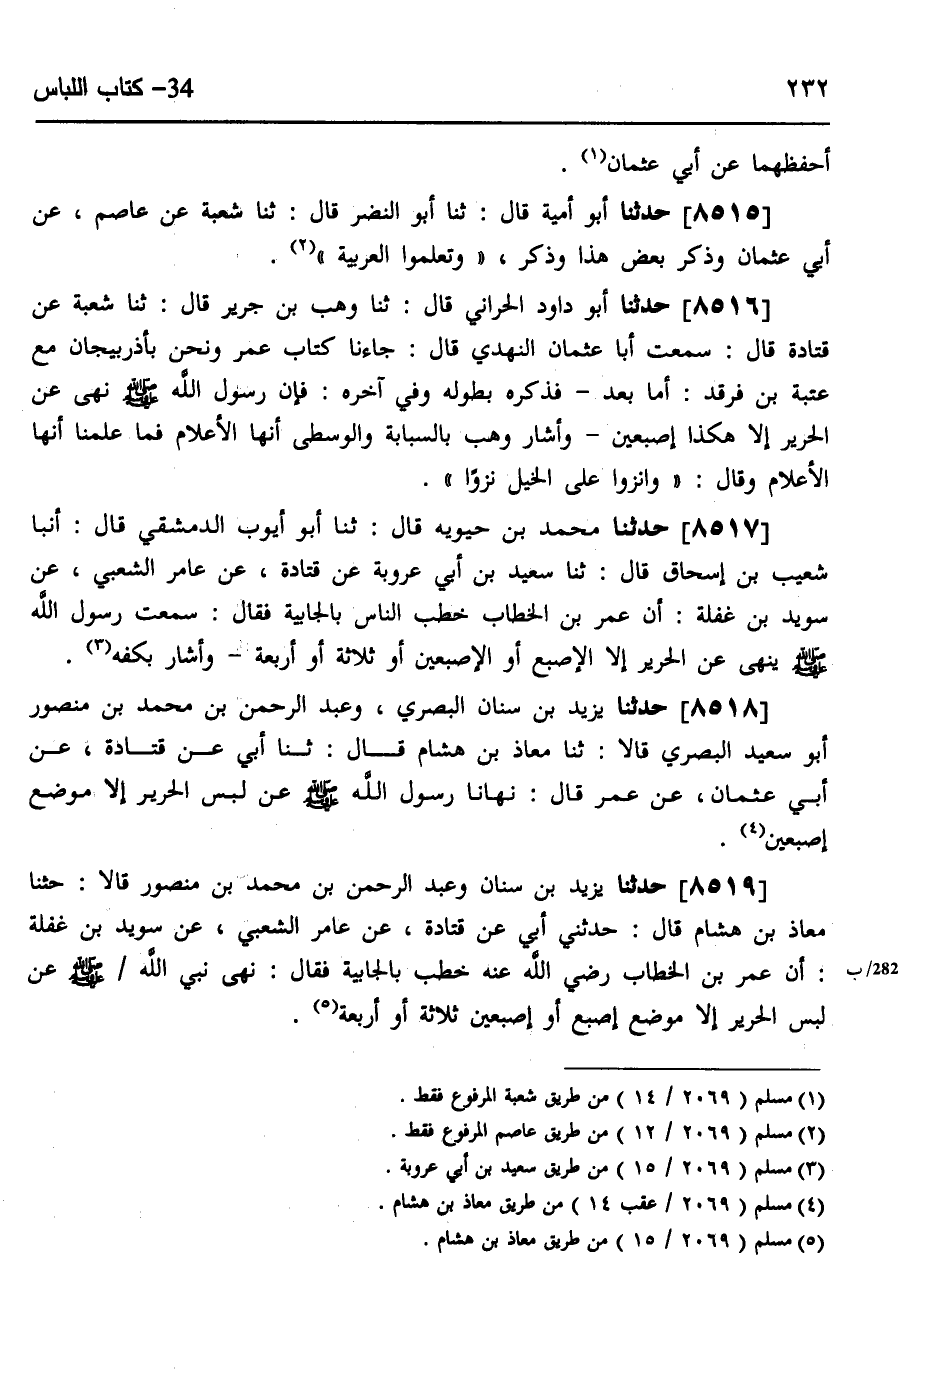 ٢٣٢
34- كتاب اللباس
أحفظهما عن أبي عثمان(١) .
[٨٥١٥] حدثنا أبو أمية قال : ثنا أبو النضر قال : ثنا شعبة عن عاصم ، عن
أبي عثمان وذكر بعض هذا وذكر ، « وتعلموا العربية »(٢) .
[٨٥١٦] حدثنا أبو داود الحراني قال : ثنا وهب بن جرير قال : ثنا شعبة عن
قتادة قال : سمعت أبا عثمان النهدي قال : جاءنا كتاب عمر ونحن بأذربيجان مع
عتبة بن فرقد : أما بعد – فذكره بطوله وفي آخره : فإن رسول اللَّه ﷺ نهى عن
الحرير إلا هكذا إصبعين – وأشار وهب بالسبابة والوسطى أنها الأعلام فما علمنا أنها
الأعلام وقال : « وانزوا على الخيل نزوًا » .
[٨٥١٧] حدثنا محمد بن حيويه قال : ثنا أبو أيوب الدمشقي قال : أنبا
شعيب بن إسحاق قال : ثنا سعيد بن أبي عروبة عن قتادة ، عن عامر الشعبي ، عن
سويد بن غفلة : أن عمر بن الخطاب خطب الناس بالجابية فقال : سمعت رسول اللَّه
ﷺ ينهى عن الحرير إلا الإصبع أو الإصبعين أو ثلاثة أو أربعة – وأشار بكفه(٣) .
[٨٥١٨] حدثنا يزيد بن سنان البصري ، وعبد الرحمن بن محمد بن منصور
أبو سعيد البصري قالا : ثنا معاذ بن هشام قـــال : ثــنا أبي عــن قتــادة ، عــن
أبــي عثمــان، عـن عمـر قال : نهـانا رسول اللَّه ﷺ عن لبـس الحرير إلا موضـع
إصبعين(٤) .
[٨٥١٩] حدثنا يزيد بن سنان وعبد الرحمن بن محمد بن منصور قالا : حثنا
معاذ بن هشام قال : حدثني أبي عن قتادة ، عن عامر الشعبي ، عن سويد بن غفلة
: أن عمر بن الخطاب رضي اللَّه عنه خطب بالجابية فقال : نهى نبي اللَّه / ﷺ عن
282/ب
لبس الحرير إلا موضع إصبع أو إصبعين ثلاثة أو أربعة(٥) .
(١) مسلم ( ٢٠٦٩ / ١٤ ) من طريق شعبة المرفوع فقط .
(٢) مسلم ( ٢٠٦٩ / ١٢ ) من طريق عاصم المرفوع فقط .
(٣) مسلم ( ٢٠٦٩ / ١٥ ) من طريق سعيد بن أبي عروبة .
(٤) مسلم ( ٢٠٦٩ / عقب ١٤ ) من طريق معاذ بن هشام .
(٥) مسلم ( ٢٠٦٩ / ١٥ ) من طريق معاذ بن هشام .